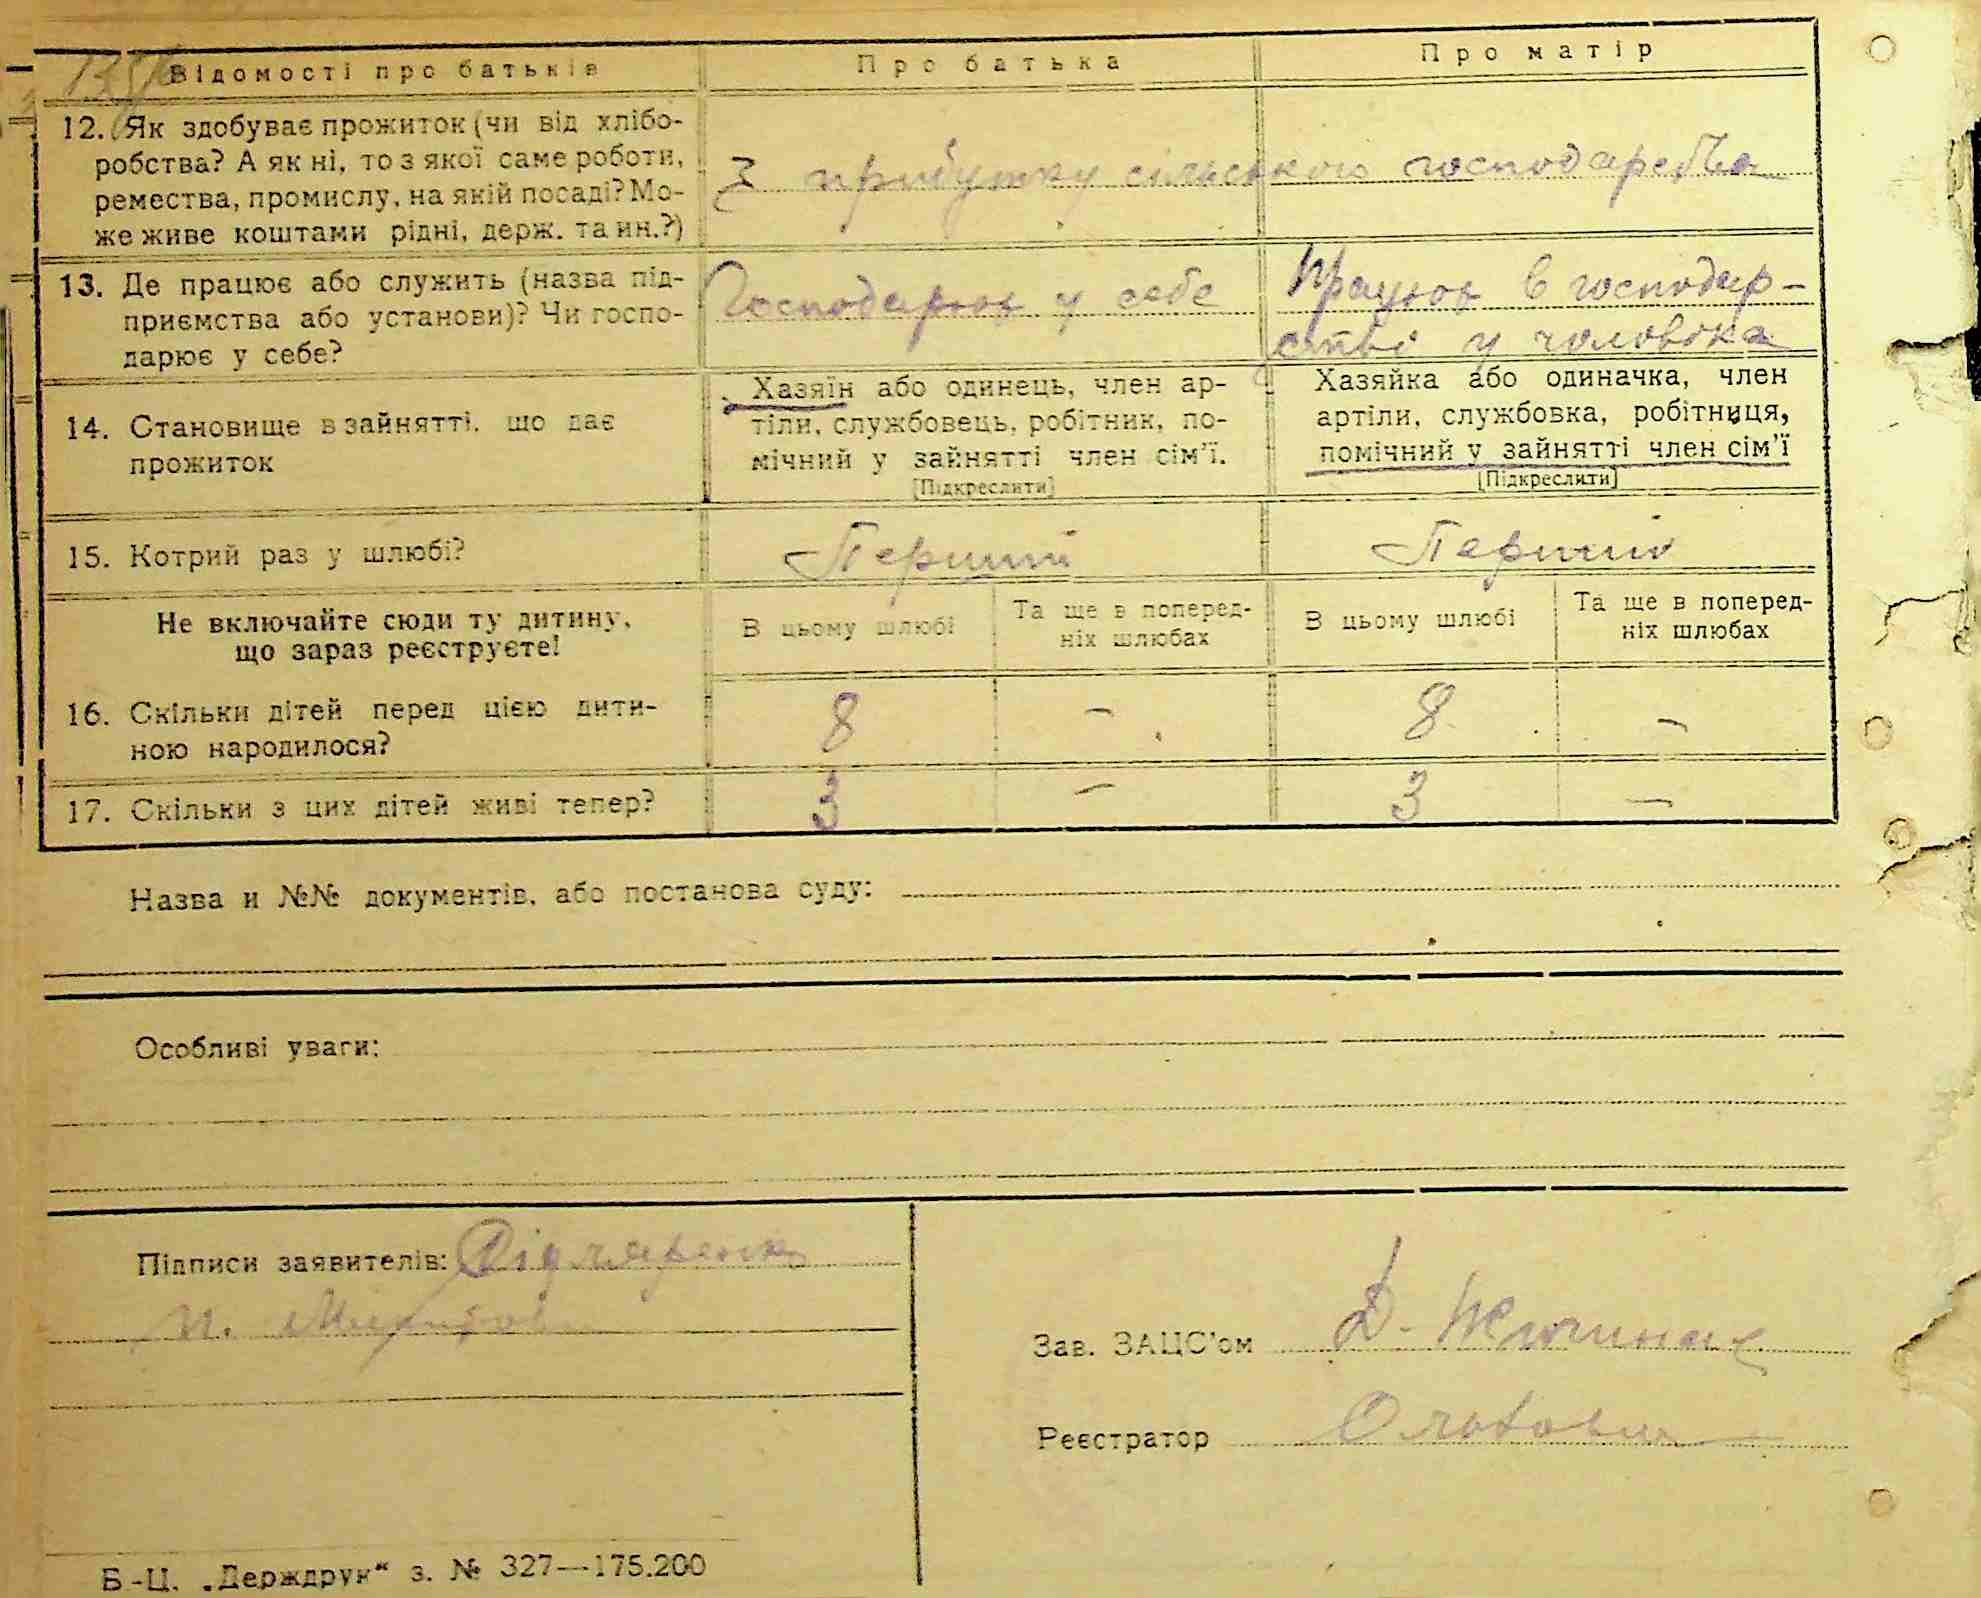 Відомості про батьків
Про батька
Про матір
12. Як здобуває прожиток (чи від хлібо-
робства? А як ні, то з якої саме роботи,
ремества, промислу, на якій посаді? Мо-
же живе коштами рідні, держ. та ин.?)
З прибутку сільського господарства
13. Де працює або служить (назва під-
приємства або установи)? Чи госпо-
дарює у себе?
Господарює у себе
Працює в господар-
стві у чоловіка
14. Становище в зайнятті, що дає
прожиток
Хазяїн або одинець, член ар-
тіли, службовець, робітник, по-
мічний у зайнятті член сім'ї.
[Підкреслити]
Хазяйка або одиначка, член
артіли, службовка, робітниця,
помічний у зайнятті член сім'ї
[Підкреслити]
15. Котрий раз у шлюбі?
Перший
Перший
Не включайте сюди ту дитину,
що зараз реєструєте!
В цьому шлюбі
Та ще в поперед-
ніх шлюбах
В цьому шлюбі
Та ще в поперед-
ніх шлюбах
16. Скільки дітей перед цією дити-
ною народилося?
8 — 8 —
17. Скільки з цих дітей живі тепер?
3 — 3 —
Назва и №№ документів, або постанова суду:
Особливі уваги:
Підписи заявителів:
Зав. ЗАЦС'ом Д.
Реєстратор
Б-Ц. „Держдрук“ з. № 327—175.200